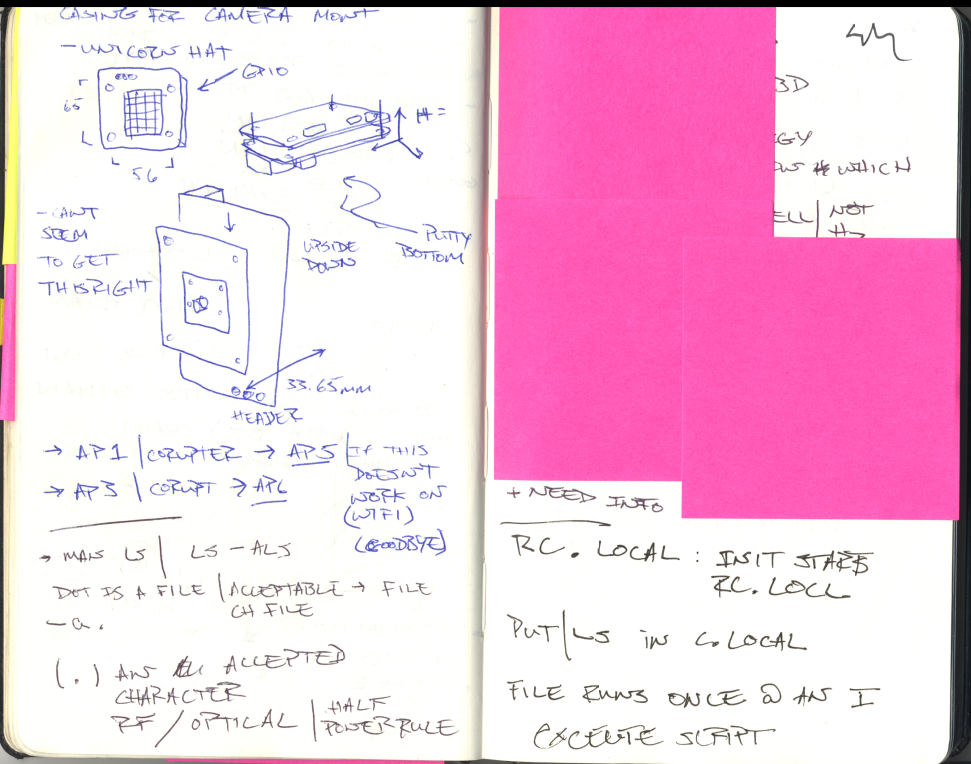 CASING FOR CAMERA MONT
- UNICORN HAT
GPIO
65
56
H =
- CANT
SEEM
TO GET
THIS RIGHT
UPSIDE
DOWN
PUTTY
BOTTOM
33.65mm
HEADER
→ AP1 | CORUPTER → AP5 | IF THIS
DOESN'T
→ AP3 | CORUPT → AP6
WORK ON
(WIFI)
(GOODBYE)
→ MAN LS | LS - ALS
DOT IS A FILE | ACCEPTABLE → FILE
CH FILE
- a.
(.) AN ACCEPTED
CHARACTER
RF / OPTICAL | HALF
POWER RULE
BD
GY
WHICH
ELL | NOT
+ NEED INFO
RC. LOCAL : INIT STARS
RC. LOCL
PUT | LS IN C. LOCAL
FILE RUNS ONCE @ AN I
EXCEUTE SCRIPT